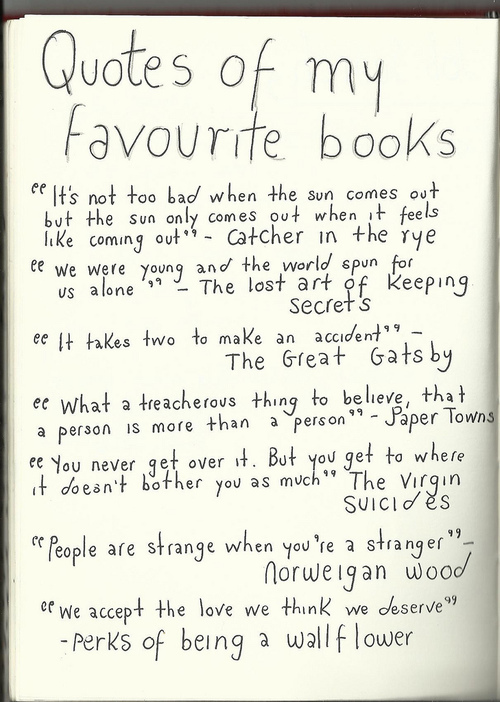 Quotes of my
favourite books
"It's not too bad when the sun comes out
but the sun only comes out when it feels
like coming out" - Catcher in the rye
"we were young and the world spun for
us alone" - The lost art of keeping
secrets
"It takes two to make an accident" -
The Great Gatsby
"What a treacherous thing to believe, that
a person is more than a person" - Paper Towns
"You never get over it. But you get to where
it doesn't bother you as much" The Virgin
suicides
"People are strange when you're a stranger" -
Norweigan wood
"we accept the love we think we deserve"
-perks of being a wallflower